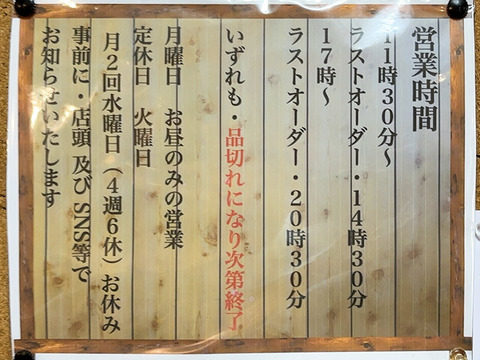 営業時間
11時30分～
ラストオーダー・14時30分
17時～
ラストオーダー・20時30分
いずれも・品切れになり次第終了
月曜日　お昼のみの営業
定休日　火曜日
月2回水曜日（4週6休）お休み
事前に・店頭 及び SNS等で
お知らせいたします